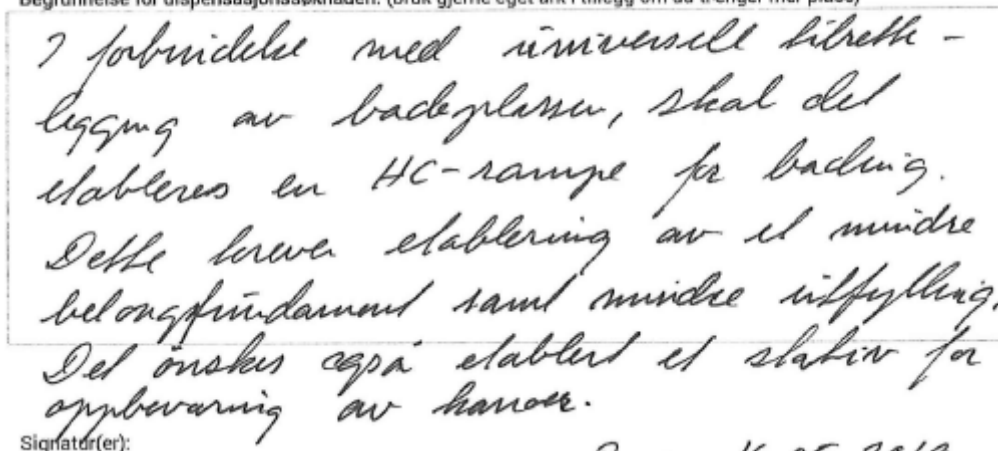 Begrunnelse for dispensasjonssøknaden: (bruk gjerne eget ark i tillegg om du trenger mer plass)
I forbindelse med universell tilrette-
legging av badeplassen, skal det
etableres en HC-rampe for bading.
Dette krever etablering av et mindre
betongfundament samt mindre utfylling.
Det ønskes også etablert et stativ for
oppbevaring av kanoer.
Signatur(er):